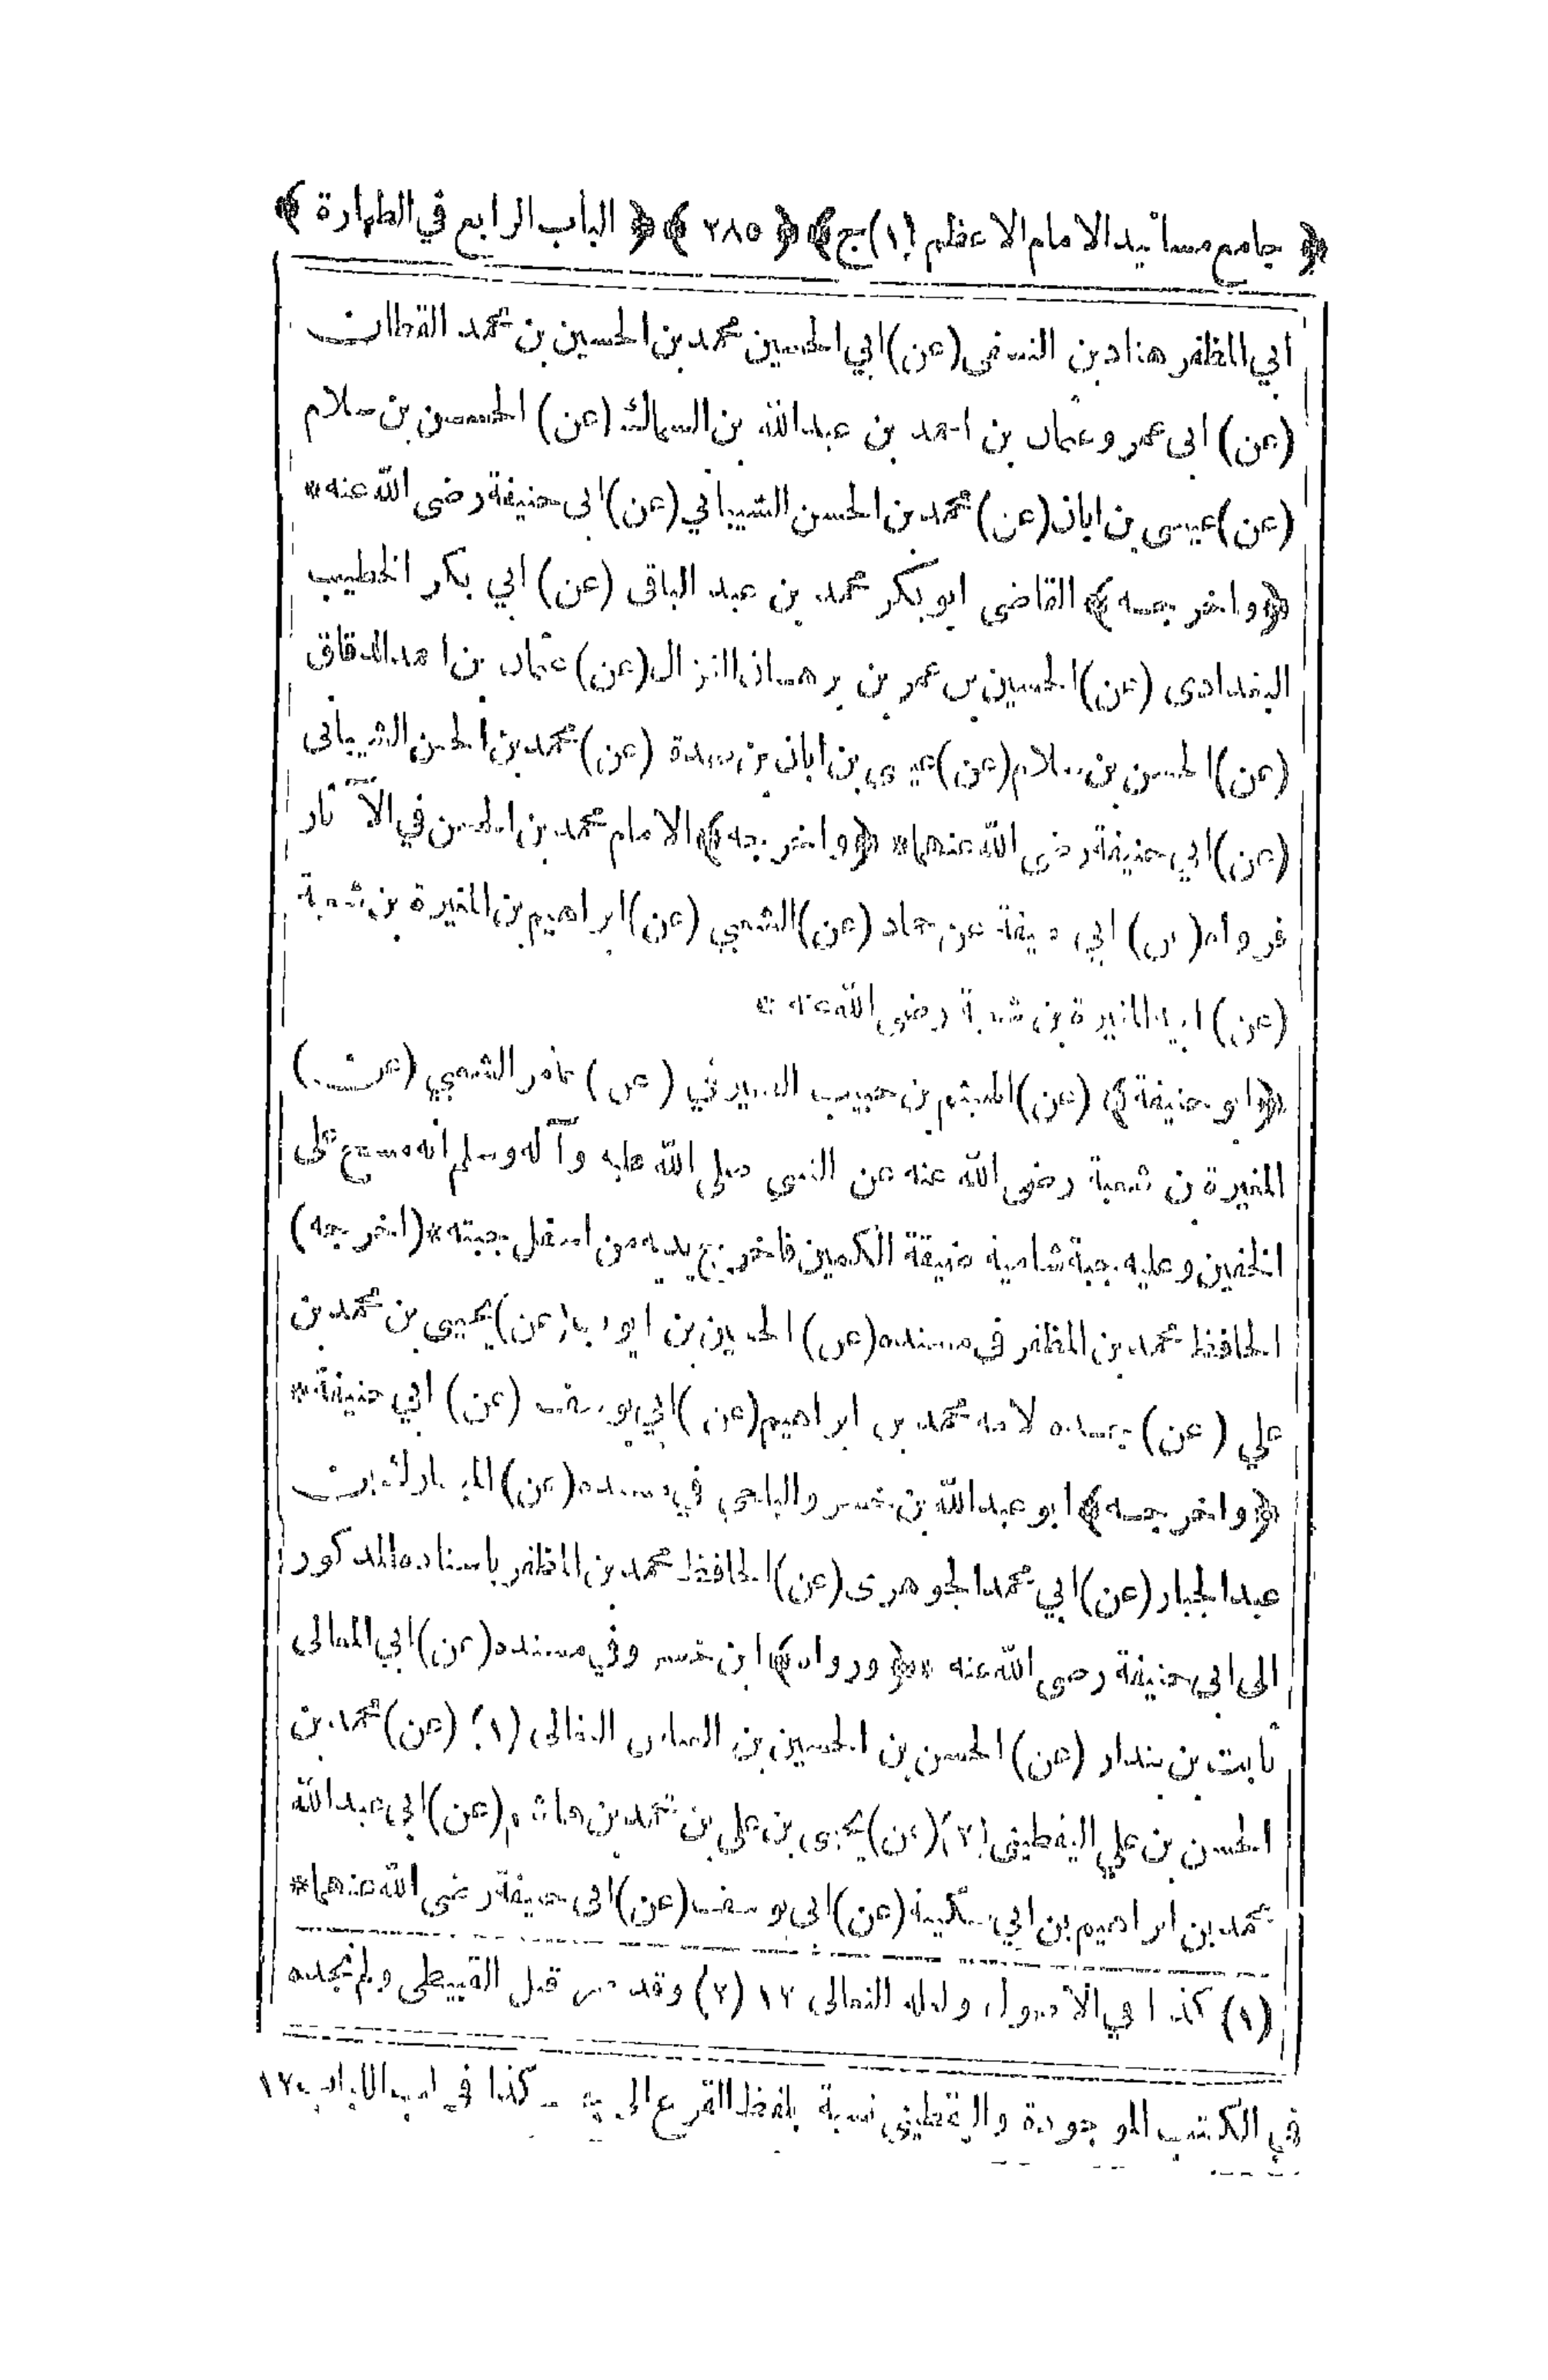 ﴿ جامع مسانيد الامام الاعظم (١) ج ﴾ ﴿ ٢٨٥ ﴾ ﴿ الباب الرابع في الطهارة ﴾
ابي المظفر هناد بن النسفى (عن) ابي الحسين محمد بن الحسين بن محمد القطان
(عن) ابى عمر وعثمان بن احمد بن عبدالله بن السماك (عن) الحسن بن سلام
(عن) عيسى بن ابان (عن) محمد بن الحسن الشيباني (عن) ابى حنيفة رضى الله عنه *
﴿ واخرجه ﴾ القاضى ابو بكر محمد بن عبد الباقى (عن) ابي بكر الخطيب
البغدادى (عن) الحسين بن عمر بن برهان الغزال (عن) عثمان بن احمد الدقاق
(عن) الحسن بن سلام (عن) عيسى بن ابان بن صدقة (عن) محمد بن الحسن الشيبانى
(عن) ابي حنيفة رضى الله عنهما * ﴿ واخرجه ﴾ الامام محمد بن الحسن في الآثار
فرواه (عن) ابي حنيفة عن حماد (عن) الشعبي (عن) ابراهيم بن المغيرة بن شعبة
(عن) ابيه المغيرة بن شعبة رضى الله عنه *
﴿ ابو حنيفة ﴾ (عن) الهيثم بن حبيب الصيرفي (عن) عامر الشعبي (عن)
المغيرة بن شعبة رضى الله عنه عن النبى صلى الله عليه وآله وسلم انه مسح على
الخفين وعليه جبة شامية ضيقة الكمين فاخرج يديه من اسفل جبته * (اخرجه)
الحافظ محمد بن المظفر فى مسنده (عن) الحسين بن (عن) يحيى بن محمد بن
علي (عن) جده لامه محمد بن ابراهيم (عن) ابي يوسف (عن) ابي حنيفة *
﴿ واخرجه ﴾ ابو عبدالله بن خسرو البلخى في مسنده (عن) المبارك بن
عبدالجبار (عن) ابي محمد الجوهرى (عن) الحافظ محمد بن المظفر باسناده المذكور
الى ابى حنيفة رضى الله عنه * ﴿ ورواه ﴾ ابن خسر وفي مسنده (عن) ابي المعالى
ثابت بن بندار (عن) الحسن بن الحسين بن العباس النغالى (١) (عن) محمد بن
الحسن بن علي اليقطينى (٢) (عن) يحيى بن علي بن محمد بن هاشم (عن) ابى عبدالله
محمد بن ابراهيم بن ابي سكينة (عن) ابى يوسف (عن) ابى حنيفة رضى الله عنهما *
(١) كذا في الاصول ولعله النعالى ١٢ (٢) وقد مر قبل القبيطى ولم نجده
في الكتب الموجودة واليقطينى نسبة بلفظ القرع الى كذا في لب اللباب ١٢